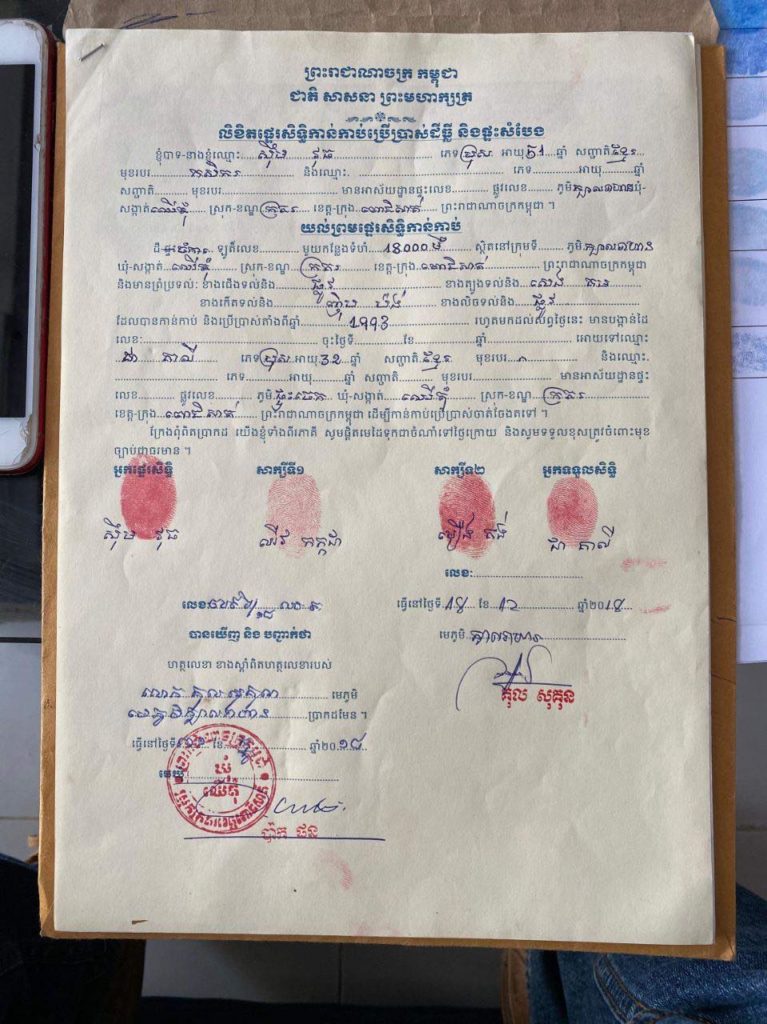 ព្រះរាជាណាចក្រ កម្ពុជា
ជាតិ សាសនា ព្រះមហាក្សត្រ
លិខិតផ្ទេរសិទ្ធិកាន់កាប់ប្រើប្រាស់ដីធ្លី និងផ្ទះសំបែង
ខ្ញុំបាទ-នាងខ្ញុំឈ្មោះ ស៊ឹម វុធ ភេទ ប្រុស អាយុ 51 ឆ្នាំ សញ្ជាតិ ខ្មែរ
មុខរបរ កសិករ និងឈ្មោះ ភេទ អាយុ ឆ្នាំ
សញ្ជាតិ មុខរបរ មានអាស័យដ្ឋានផ្ទះលេខ ផ្លូវលេខ ភូមិ ឃុំ-
សង្កាត់ ឈើតុំ ស្រុក-ខណ្ឌ ក្រគរ ខេត្ត-ក្រុង ពោធិសាត់ ព្រះរាជាណាចក្រកម្ពុជា ។
យល់ព្រមផ្ទេរសិទ្ធិកាន់កាប់
ដី ចំការ ឡូតិ៍លេខ មួយកន្លែងទំហំ 18000 ម២ ស្ថិតនៅក្រុមទី ភូមិ
ឃុំ-សង្កាត់ ឈើតុំ ស្រុក-ខណ្ឌ ក្រគរ ខេត្ត-ក្រុង ពោធិសាត់ ព្រះរាជាណាចក្រកម្ពុជា
និងមានព្រំប្រទល់: ខាងជើងទល់និង ផ្លូវ ខាងត្បូងទល់និង សេង
ខាងកើតទល់និង ខាងលិចទល់និង ផ្លូវ
ដែលបានកាន់កាប់ និងប្រើប្រាស់តាំងពីឆ្នាំ 1993 រហូតមកដល់សព្វថ្ងៃនេះ មានបង្កាន់ដៃ
លេខ: ចុះថ្ងៃទី ខែ ឆ្នាំ អោយទៅឈ្មោះ
ជា តាលី ភេទ ប្រុស អាយុ 32 ឆ្នាំ សញ្ជាតិ ខ្មែរ មុខរបរ និងឈ្មោះ
ភេទ អាយុ ឆ្នាំ សញ្ជាតិ មុខរបរ មានអាស័យដ្ឋានផ្ទះ
លេខ ផ្លូវលេខ ភូមិ ឃុំ-សង្កាត់ ឈើតុំ ស្រុក-ខណ្ឌ ក្រគរ
ខេត្ត-ក្រុង ពោធិសាត់ ព្រះរាជាណាចក្រកម្ពុជា ដើម្បីកាន់កាប់ប្រើប្រាស់បាត់ចែងតទៅ ។
ក្រែងពុំពិតប្រាកដ យើងខ្ញុំទាំងពីរភាគី សូមផ្តិតមេដៃទុកជាចំណាំទៅថ្ងៃក្រោយ និងសូមទទួលខុសត្រូវចំពោះមុខ
ច្បាប់ជាធរមាន ។
អ្នកផ្ទេរសិទ្ធិ សាក្សីទី១ សាក្សីទី២ អ្នកទទួលសិទ្ធិ
ស៊ឹម វុធ ជា តាលី
លេខ:
លេខ: ធ្វើនៅថ្ងៃទី ខែ 12 ឆ្នាំ២០
បានឃើញ និង បញ្ជាក់ថា
មេភូមិ
ហត្ថលេខា ខាងស្តាំពិតហត្ថលេខារបស់
គុល សុគុន
លោក មេភូមិ
ប្រាកដមែន ។
ធ្វើនៅថ្ងៃទី ខែ ឆ្នាំ២០18
មេឃុំ
ឃុំ
ឈើតុំ
ប៉ាក ផន